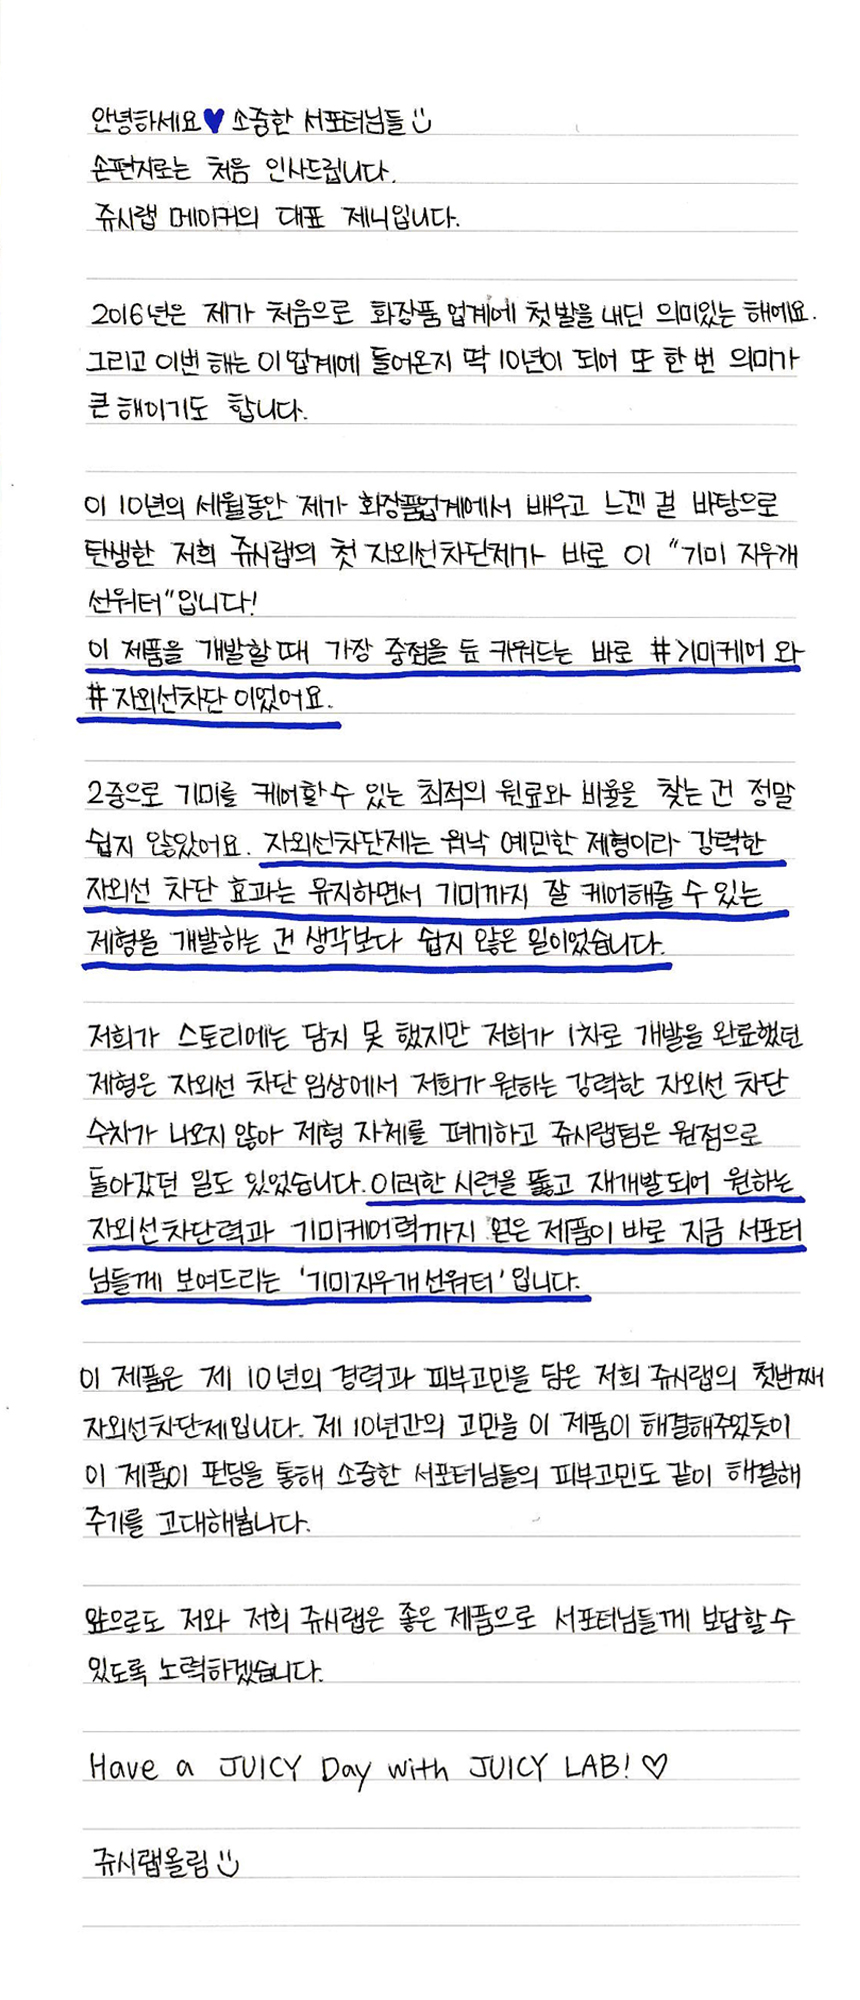 안녕하세요♥ 소중한 서포터님들 :)
손편지로는 처음 인사드립니다.
쥬시랩 메이커의 대표 제니입니다.
2016년은 제가 처음으로 화장품 업계에 첫발을 내딘 의미있는 해에요.
그리고 이번 해는 이 업계에 들어온지 딱 10년이 되어 또 한 번 의미가
큰 해이기도 합니다.
이 10년의 세월동안 제가 화장품업계에서 배우고 느낀 걸 바탕으로
탄생한 저희 쥬시랩의 첫 자외선차단제가 바로 이 "기미 지우개
선워터"입니다!
이 제품을 개발할 때 가장 중점을 둔 키워드는 바로 #기미케어 와
#자외선차단 이었어요.
2중으로 기미를 케어할 수 있는 최적의 원료와 비율을 찾는 건 정말
쉽지 않았어요. 자외선차단제는 워낙 예민한 제형이라 강력한
자외선 차단 효과는 유지하면서 기미까지 잘 케어해줄 수 있는
제형을 개발하는 건 생각보다 쉽지 않은 일이었습니다.
저희가 스토리에는 담지 못 했지만 저희가 1차로 개발을 완료했던
제형은 자외선 차단 임상에서 저희가 원하는 강력한 자외선 차단
수치가 나오지 않아 제형 자체를 폐기하고 쥬시랩팀은 원점으로
돌아갔던 일도 있었습니다. 이러한 시련을 뚫고 재개발되어 원하는
자외선차단력과 기미케어력까지 얻은 제품이 바로 지금 서포터
님들께 보여드리는 '기미지우개 선워터' 입니다.
이 제품은 제 10년의 경력과 피부고민을 담은 저희 쥬시랩의 첫번째
자외선차단제입니다. 제 10년간의 고민을 이 제품이 해결해주었듯이
이 제품이 펀딩을 통해 소중한 서포터님들의 피부고민도 같이 해결해
주기를 고대해봅니다.
앞으로도 저와 저희 쥬시랩은 좋은 제품으로 서포터님들께 보답할 수
있도록 노력하겠습니다.
Have a JUICY Day with JUICY LAB! ♡
쥬시랩올림 :)